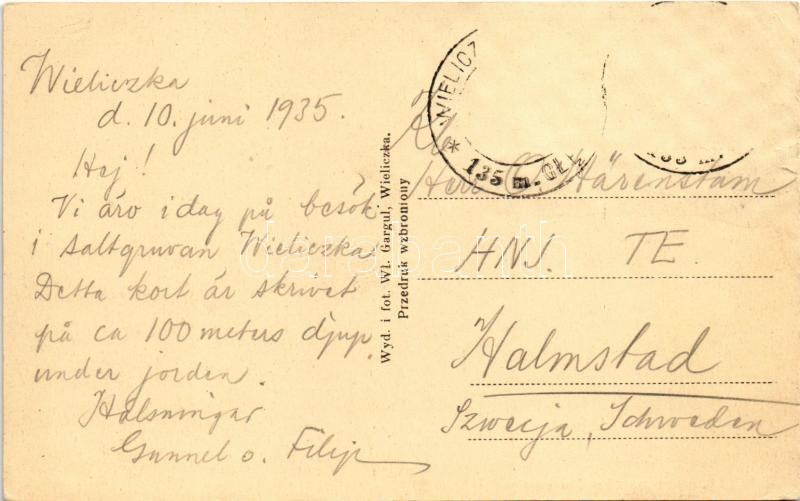 Wieliczka
d. 10. juni 1935.
Hej!
Vi äro i dag på besök
i saltgruvan Wieliczka.
Detta kort är skrivet
på ca 100 meters djup
under jorden.
Hälsningar
Gunnel o. Filip
Wyd. i fot. Wl. Gargul, Wieliczka.
Przedruk wzbroniony
WIELICZ
* 135 m. GŁ
135 m.
Herr Härenstam
HNJ. TE.
Halmstad
Szwecja, Schweden
darabanth